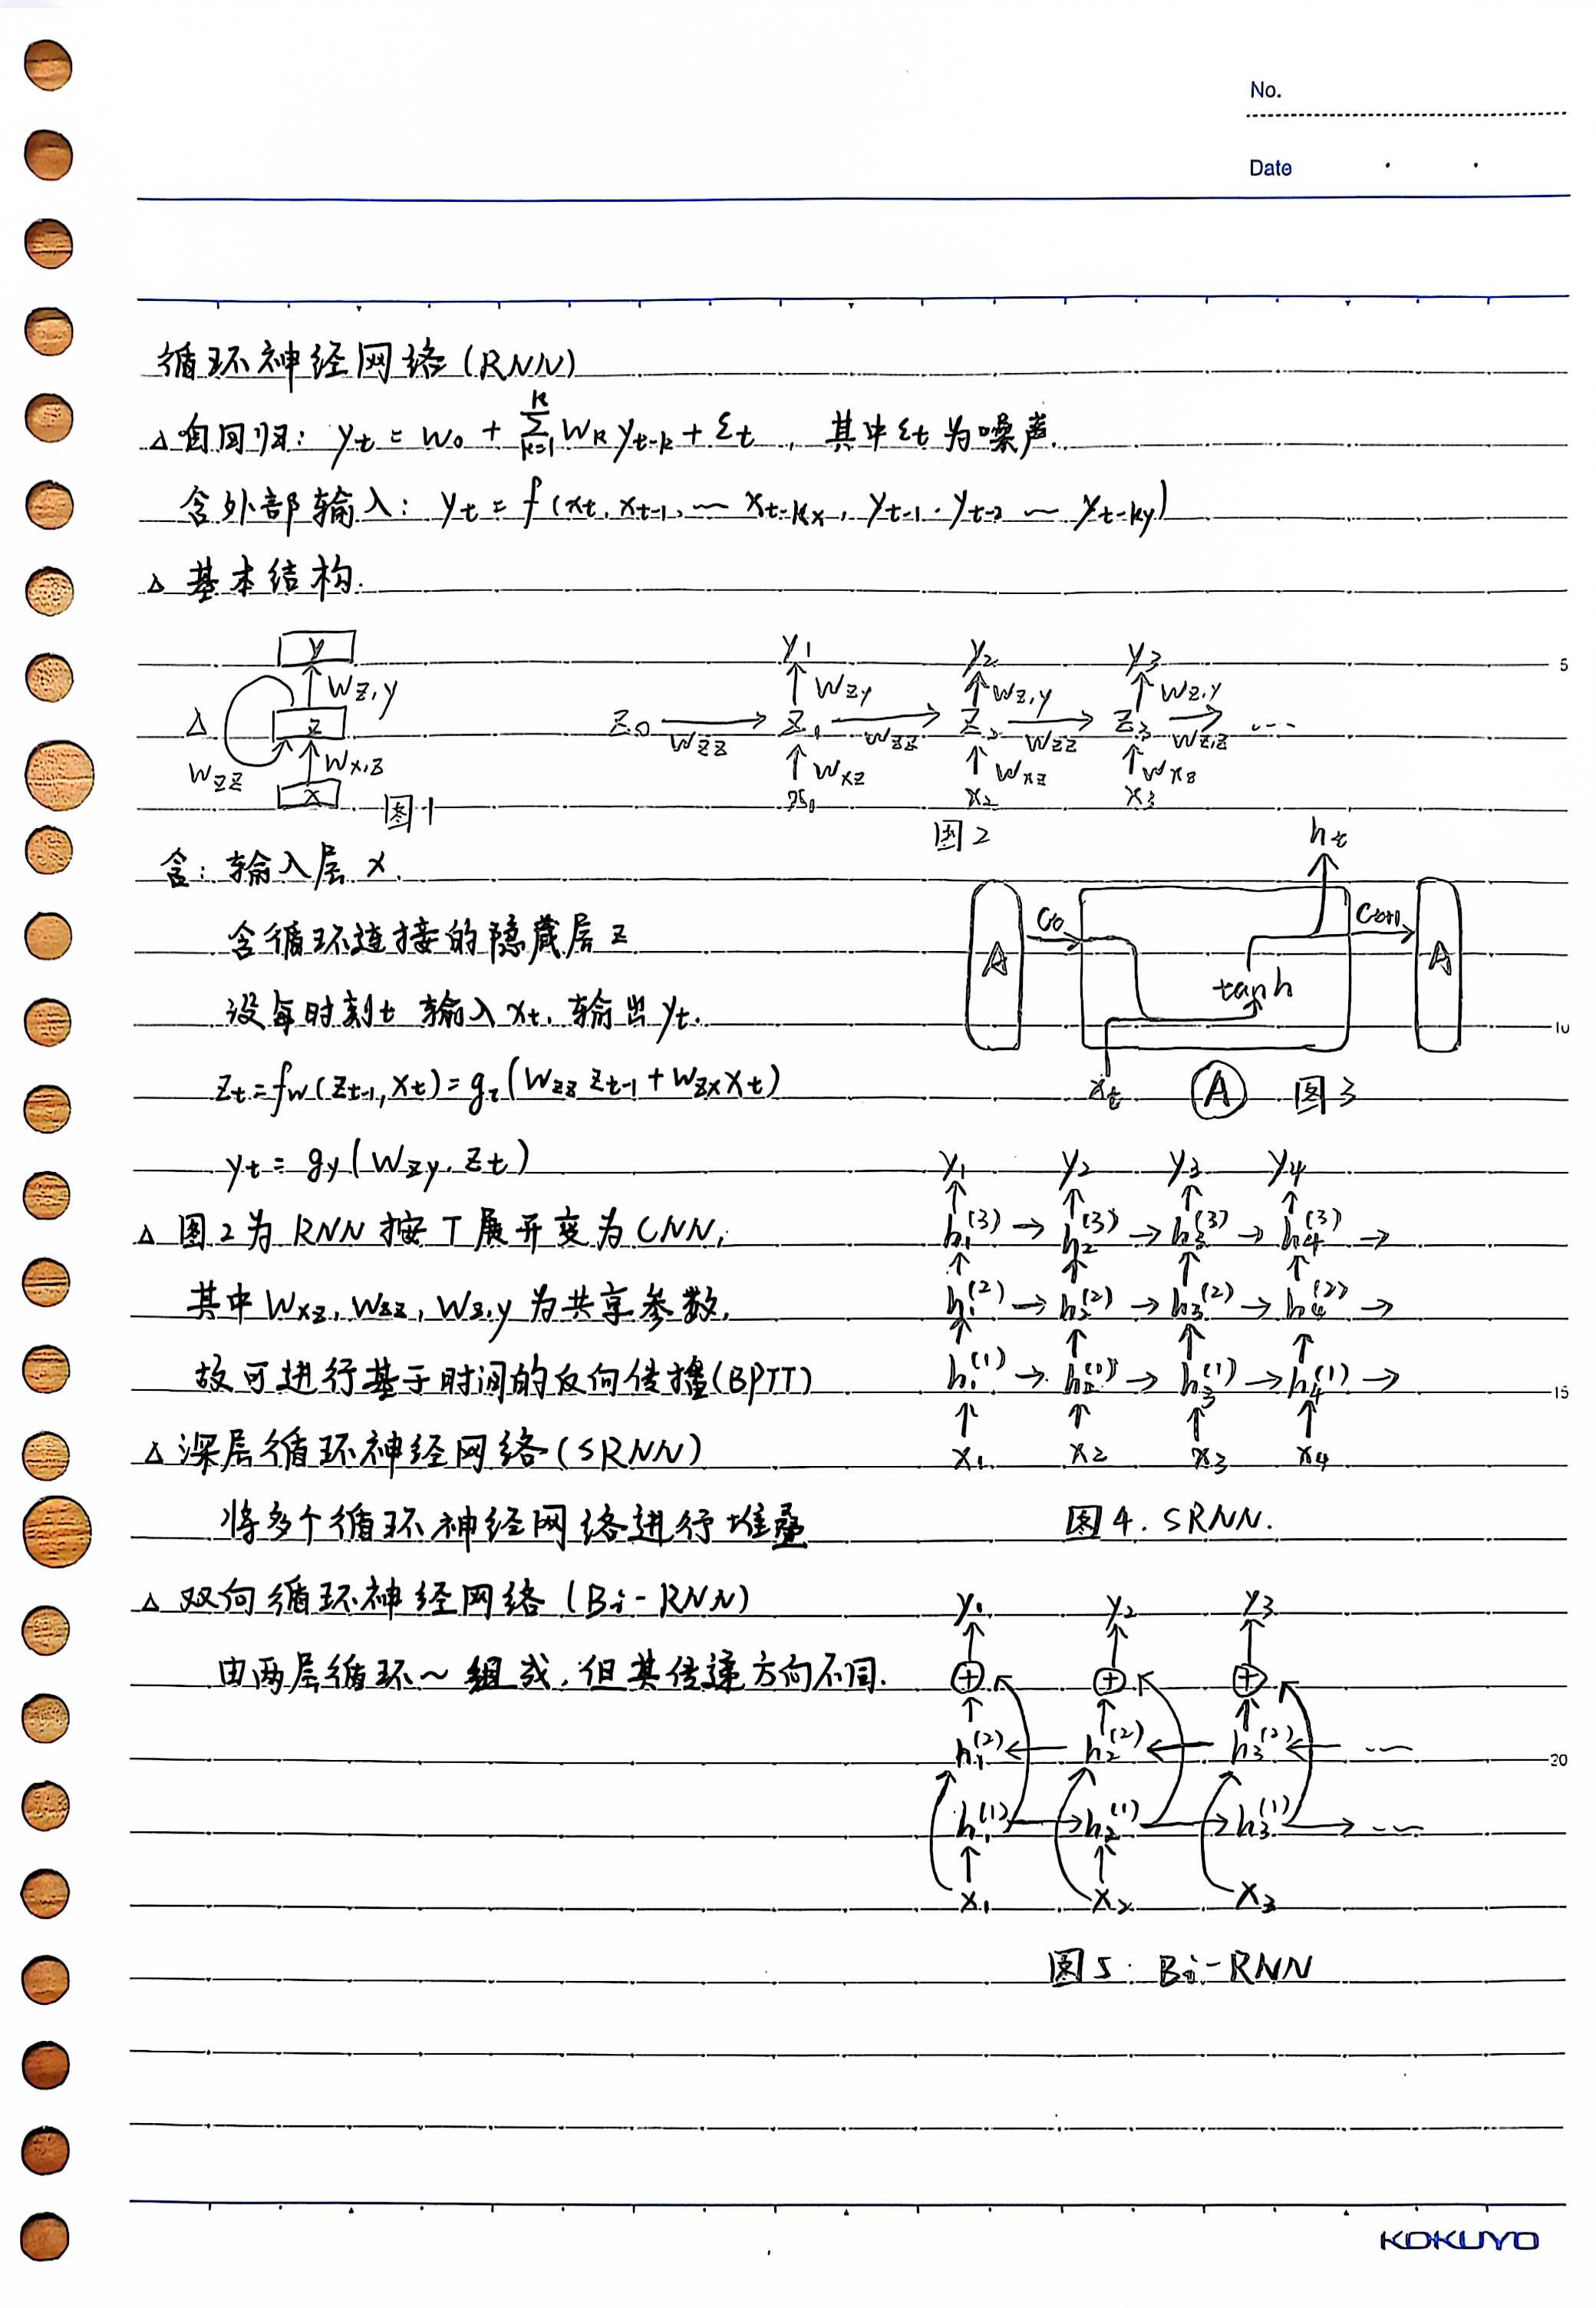 No.
Date
循环神经网络(RNN)
△自回归: yt = w0 + Σ(k=1→K) wk yt-k + εt , 其中εt 为噪声.
含外部输入: yt = f(xt, xt-1, ⋯ xt-kx, yt-1, yt-2 ⋯ yt-ky)
△基本结构.
y
Wz,y
△ z
Wzz Wx,z
x
图1
y1 y2 y3
Wzy Wz,y Wz,y
z0 Wzz z1 Wzz z2 Wzz z3 Wz,z ⋯
Wxz Wxz Wxz
x1 x2 x3
图2
含: 输入层 x.
含循环连接的隐藏层 z
设每时刻t 输入xt, 输出yt.
zt = fw(zt-1, xt) = gz(Wzz zt-1 + Wzx xt)
yt = gy(Wzy. zt)
ht
A tanh A
xt
A 图3
△图2为RNN按T展开变为CNN,
其中Wxz, Wzz, Wz,y为共享参数,
故可进行基于时间的反向传播(BPTT)
△深层循环神经网络(SRNN)
将多个循环神经网络进行堆叠
y1 y2 y3 y4
h1(3) → h2(3) → h3(3) → h4(3) →
h1(2) → h2(2) → h3(2) → h4(2) →
h1(1) → h2(1) → h3(1) → h4(1) →
x1 x2 x3 x4
图4. SRNN.
△双向循环神经网络(Bi-RNN)
由两层循环~组成, 但其传递方向不同.
y1 y2 y3
⊕ ⊕ ⊕
h1(2) ← h2(2) ← h3(2) ← ⋯
h1(1) → h2(1) → h3(1) → ⋯
x1 x2 x3
图5. Bi-RNN
5
10
15
20
KOKUYO